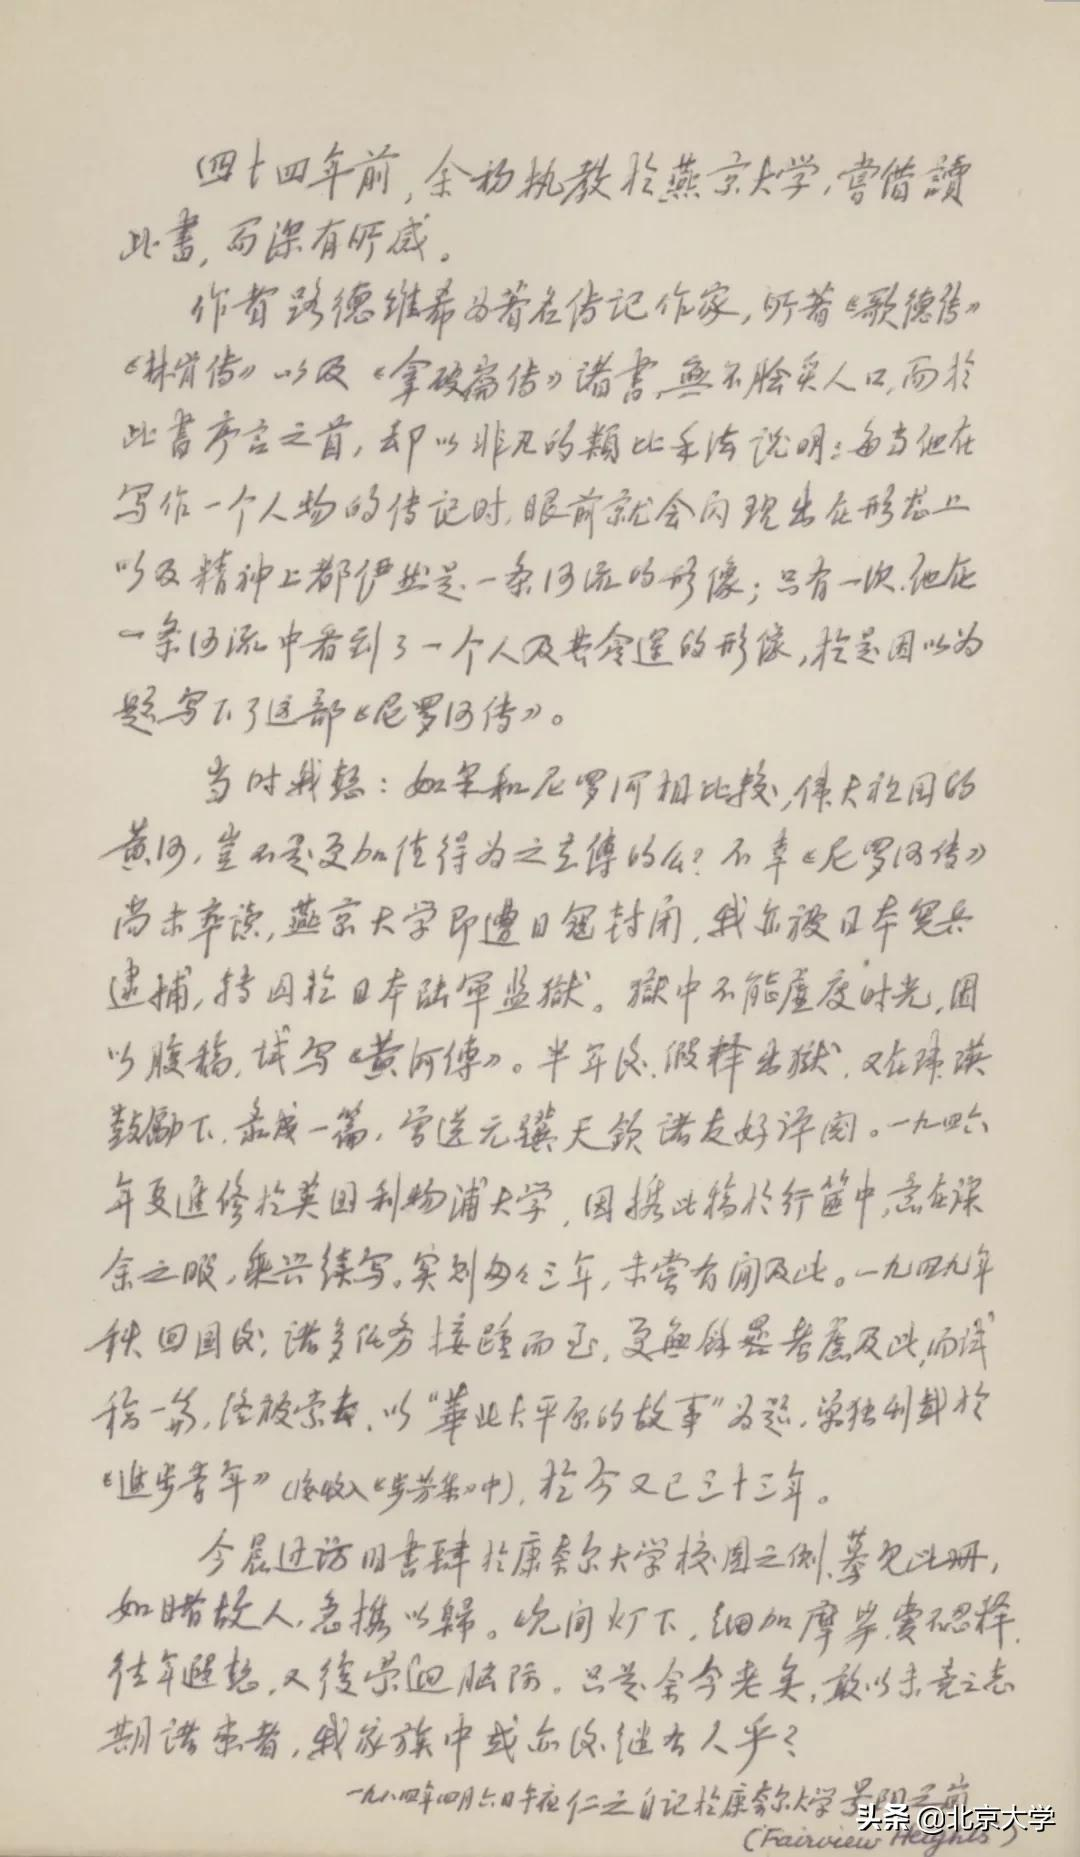 四十四年前，余初执教於燕京大学，嘗借讀
此書，而深有所感。
作者路德维希为著名传记作家，所著《歌德传》
《林肯传》以及《拿破崙传》诸書，無不脍炙人口，而於
此書序言之首，却以非凡的類比手法说明：每当他在
写作一个人物的传记时，眼前就会闪现出在形态上
以及精神上都俨然是一条河流的形像；只有一次，他在
一条河流中看到了一个人及其命运的形像，於是因以为
题写下了这部《尼罗河传》。
当时我想：如果和尼罗河相比较，伟大祖国的
黄河，豈不是更加值得为之立傳的么？不幸《尼罗河传》
尚未卒读，燕京大学即遭日寇封闭，我亦被日本宪兵
逮捕，转囚於日本陆軍监獄。獄中不能虚度时光，因
以腹稿，试写《黄河傳》。半年后，假释出獄，又在玮瑛
鼓勵下，录成一篇，曾送元骥天钦诸友好评阅。一九四六
年夏進修於英国利物浦大学，因携此稿於行箧中，意在课
余之暇，乘兴续写。实则匆匆三年，未嘗有闲及此。一九四九年
秋回国后，诸多任务接踵而至，更無餘暑考慮及此，而试
稿一篇，终被索去，以“華北大平原的故事”为题，单独刊载於
《進步青年》（后收入《步芳集》中），於今又已三十三年。
今晨过访旧書肆於康奈尔大学校园之侧，蓦见此册，
如睹故人，急携以歸。晚间灯下，细加摩挲，爱不忍释，
往年遐想，又復萦迴脑际。只是余今老矣，敢以未竟之志
期诸来者，我家族中或亦后继有人乎？
一九八四年四月六日午夜仁之自记於康奈尔大学景阳之崗
(Fairview Heights)
头条 @北京大学